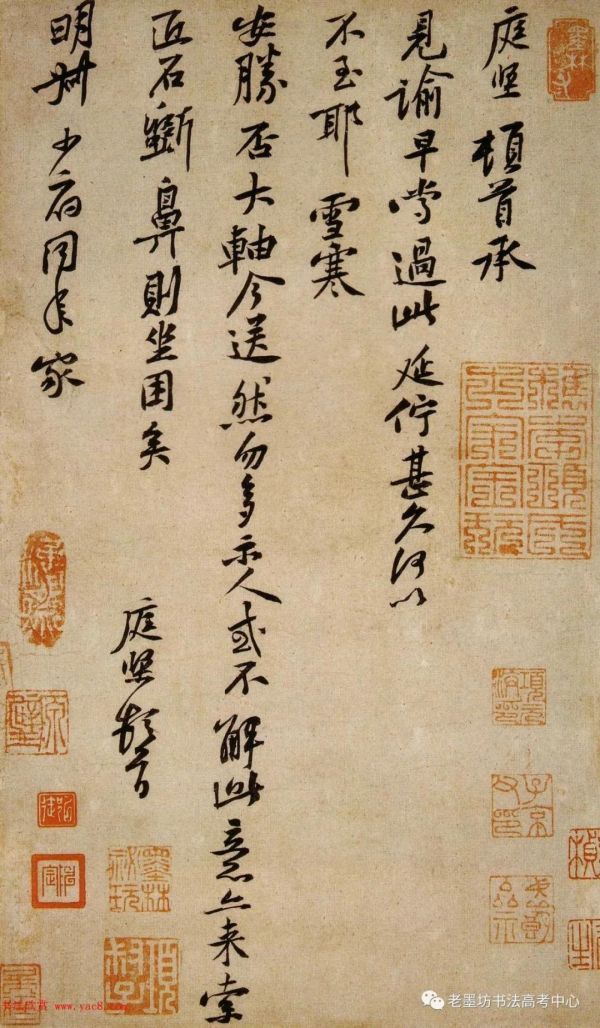 庭堅頓首承
見諭早嘗過此延佇甚久何以
不至耶 雪寒
安勝否大軸今送然勿多示人或不解此意亦来索
匠石斲鼻則坐困矣
庭堅頓首
明叔少府同年家
項元汴印
子京父印
墨林秘玩
老墨坊书法高考中心
书法欣赏 www.yac8.com